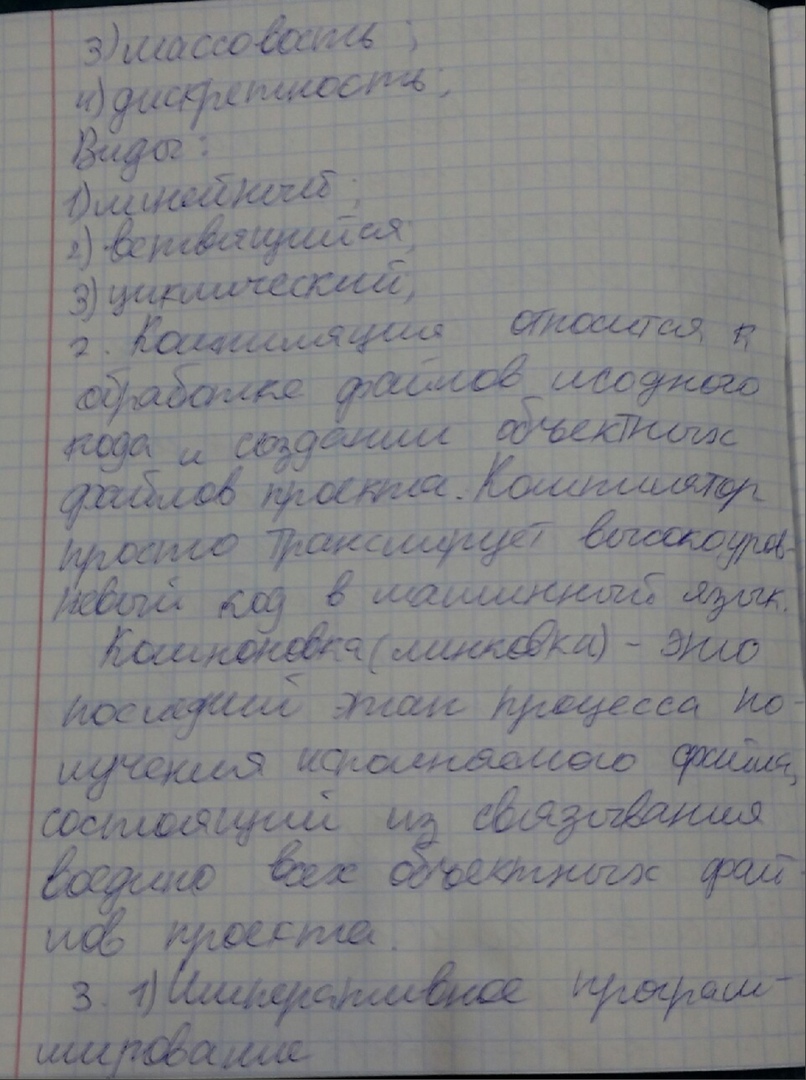 3) массовость;
4) дискретность;
Виды:
1) линейный;
2) ветвящийся;
3) циклический;
2. Компиляция относится к
обработке файлов исодного
кода и создании объектных
файлов проекта. Компилятор
просто транслирует высокоуров-
невый код в машинный язык.
Компоновка (линковка) - это
последний этап процесса по-
лучения исполняемого файла,
состоящий из связывания
воедино всех объектных фай-
лов проекта.
3. 1) Императивное програм-
мирование